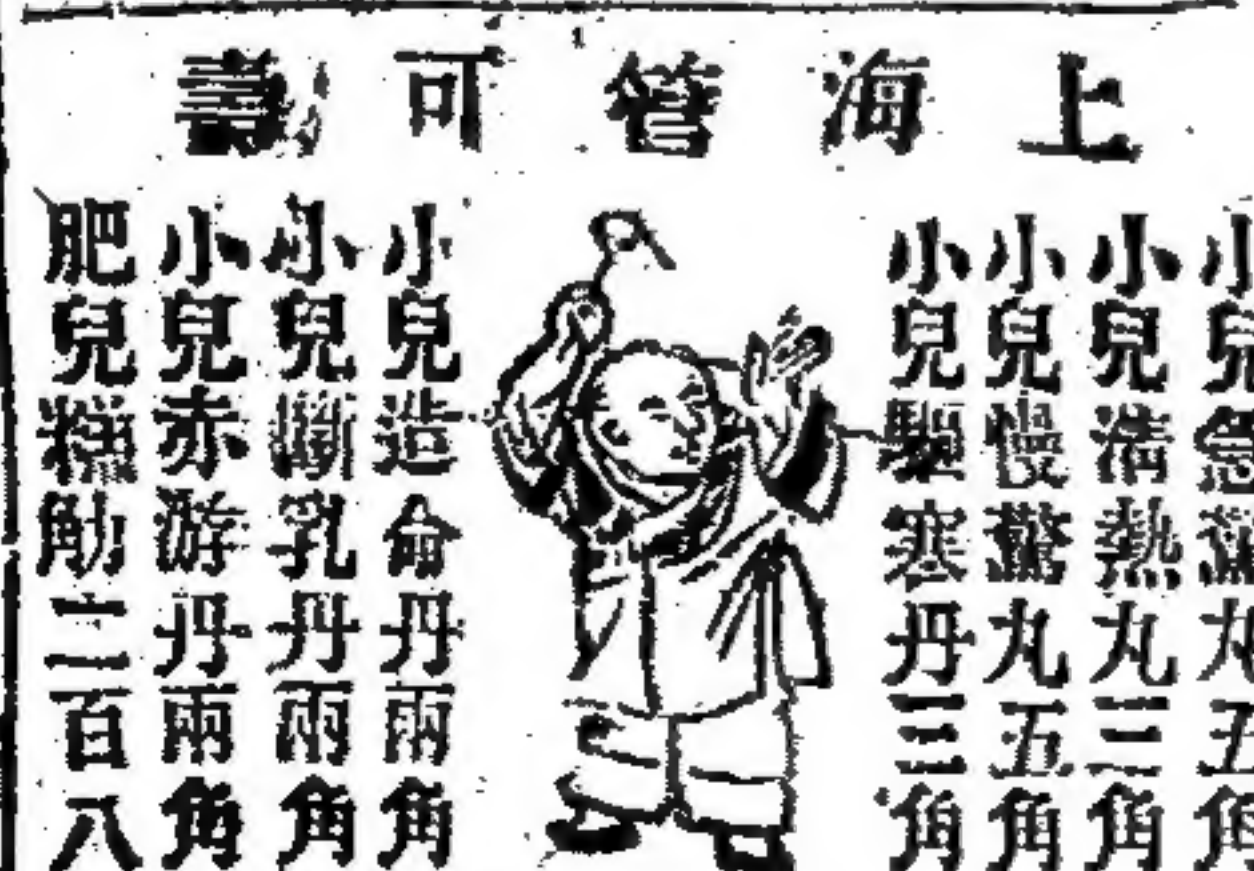 上海管可壽
小兒急驚丸五角
小兒清熱丸三角
小兒慢驚丸五角
小兒驅寒丹三角
小兒造命丹兩角
小兒斷乳丹兩角
小兒赤游丹兩角
肥兒糕觔二百八